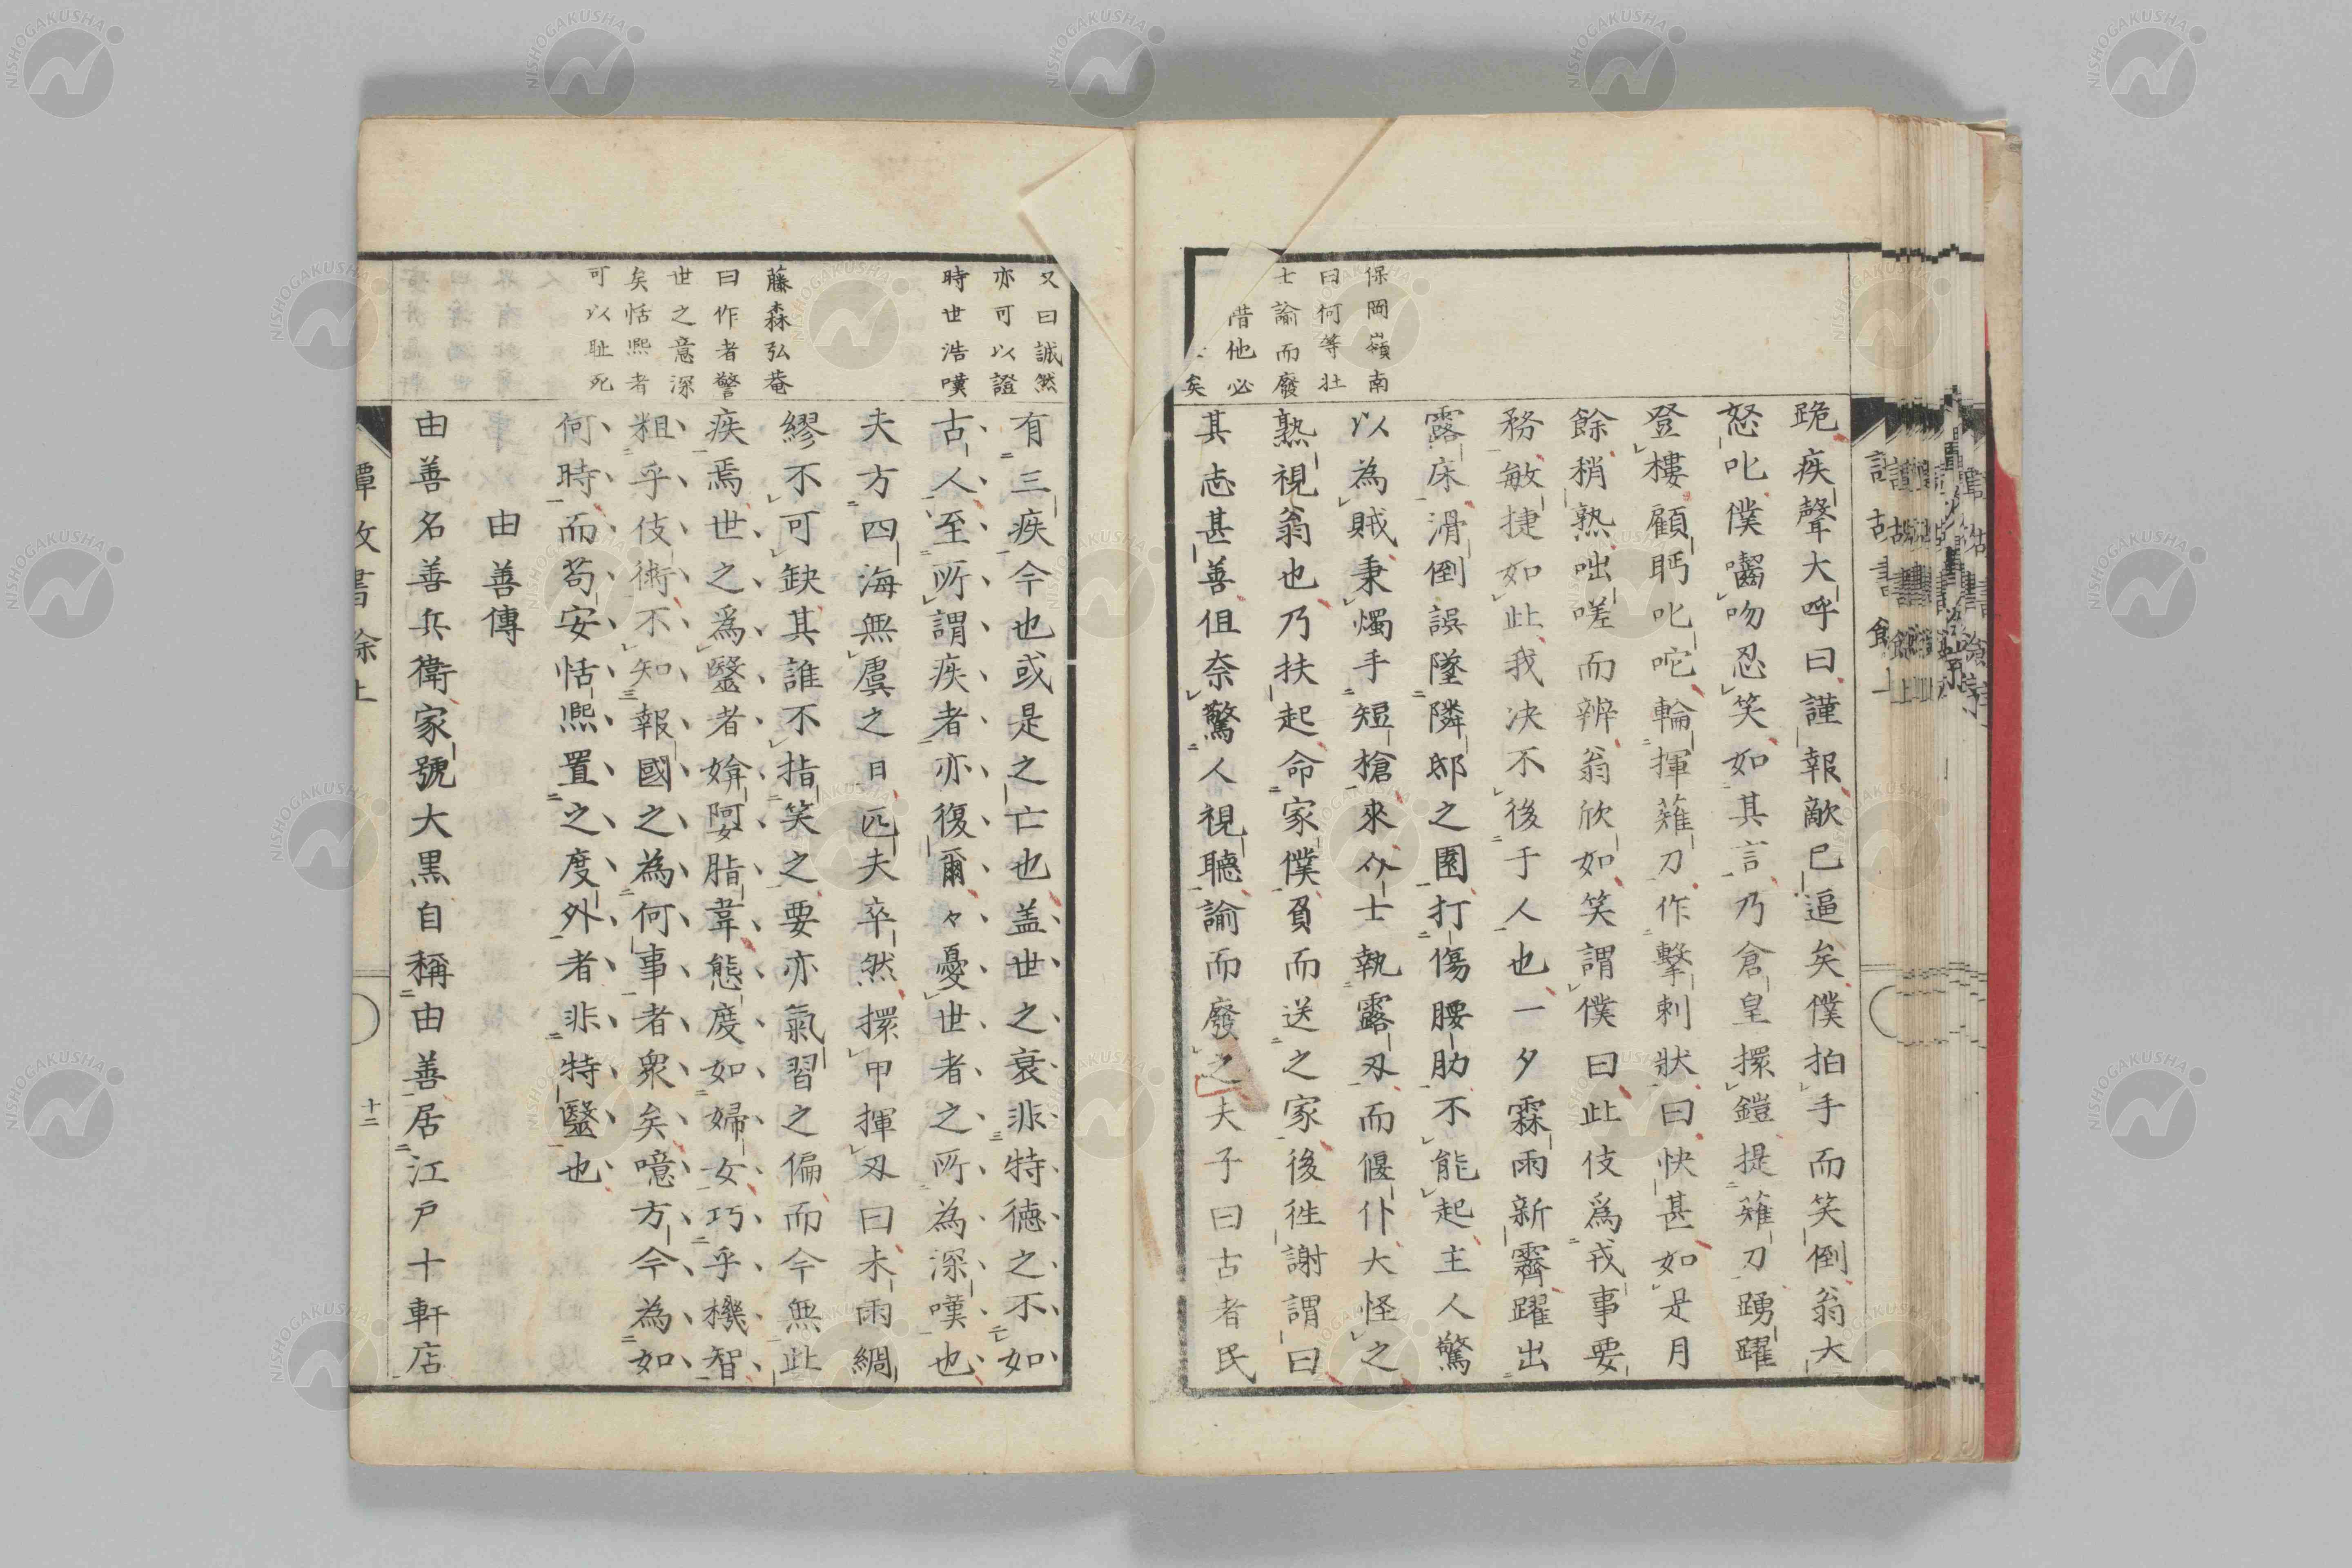 保岡嶺南
曰何等壮
士諭而廢
惜他必
矣
跪疾聲大呼曰謹報敵已逼矣僕拍手而笑倒翁大
怒叱僕囓吻忍笑如其言乃倉皇擐鎧提薙刀踴躍
登樓顧眄叱咜輪揮薙刀作擊刺狀曰快甚如是月
餘稍熟咄嗟而辨翁欣如笑謂僕曰此伎爲戎事要
務敏捷如此我决不後于人也一夕霖雨新霽躍出
露床滑倒誤墜隣邸之園打傷腰肋不能起主人驚
以為賊秉燭手短槍來介士執露刃而偃仆大怪之
熟視翁也乃扶起命家僕負而送之家後徃謝謂曰
其志甚善但奈驚人視聽諭而廢之夫子曰古者民
又曰誠然
亦可以證
時世浩嘆
藤森弘菴
曰作者警
世之意深
矣恬熈者
可以耻死
有三疾今也或是之亡也盖世之衰非特德之不如
古人至所謂疾者亦復爾々憂世者之所為深嘆也
夫方四海無虞之日匹夫卒然擐甲揮刃曰未雨綢
繆不可缺其誰不指笑之要亦氣習之偏而今無此
疾焉世之爲醫者媕阿脂韋態度如婦女巧乎機智
粗乎伎術不知報國之為何事者衆矣噫方今為如
何時而苟安恬熈置之度外者非特醫也
由善傳
由善名善兵衛家號大黒自稱由善居江戸十軒店
十二